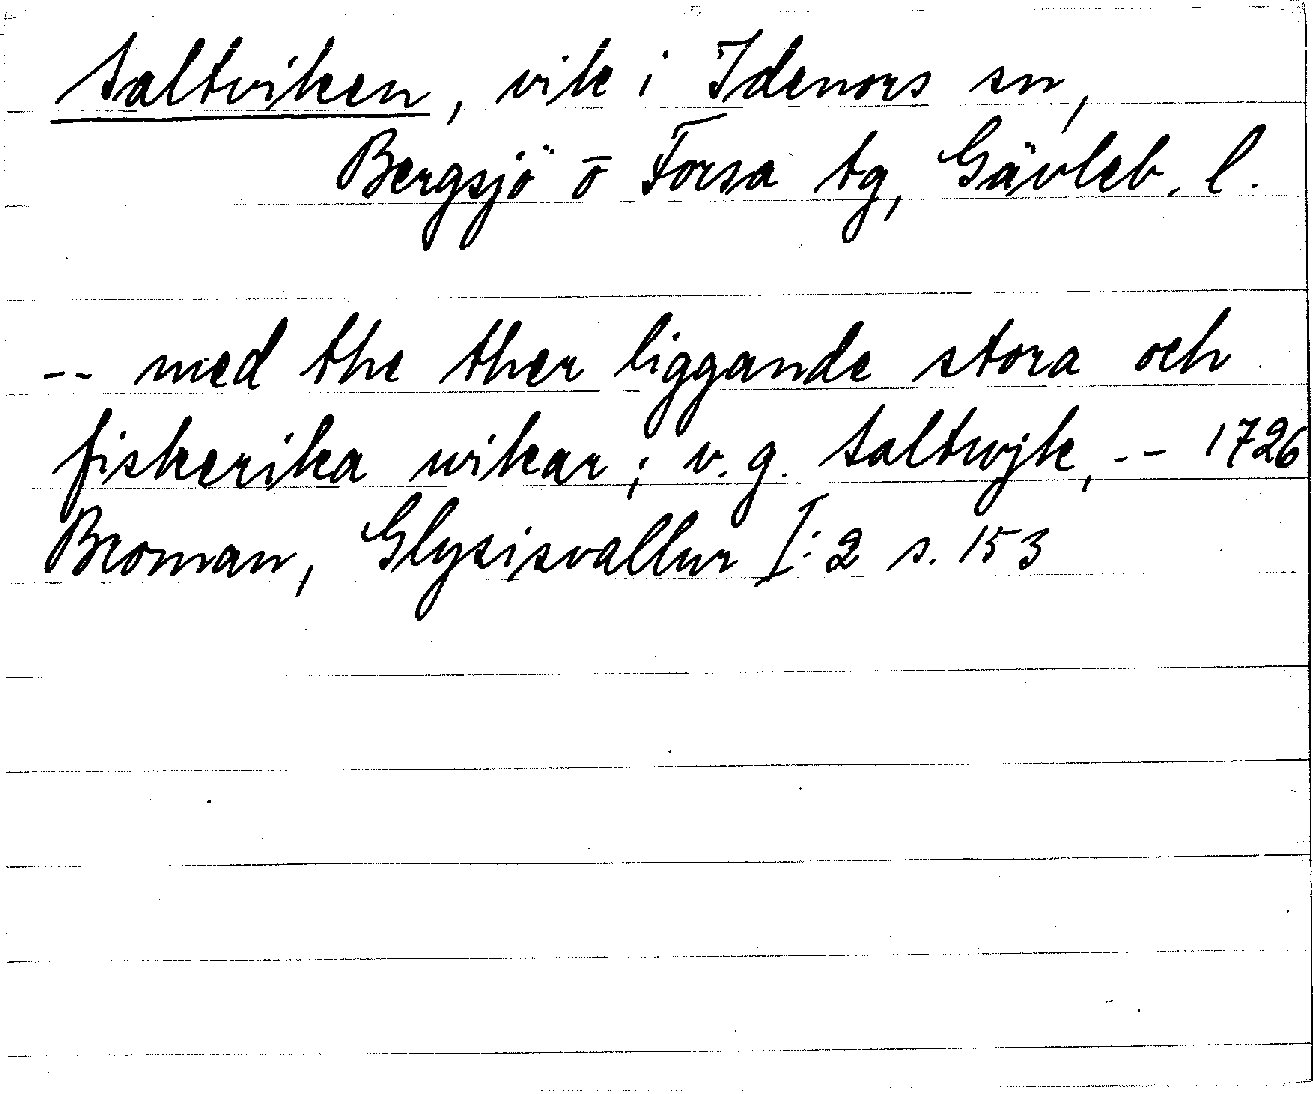 Saltviken, vik i Idenors sn,
Bergsjö o Forsa tg, Gävleb. l.
-- med the ther liggande stora och
fiskerika wikar; v.g. Saltwjk, -- 1726
Broman, Glysisvallur I:2 s. 153